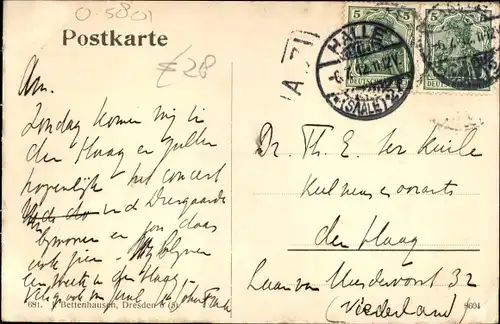 0-5801
Postkarte
€28
5 5
HALLE
(SAALE)
Am.
Zondag komen wij in
den Haag en zullen
hopenlijk het concert
in de Diergaarde
bijwonen en jou daar
ook zien - Wij blijven
een week in den Haag -
Dr. Th. E. ter Kuile
Keel neus en oorarts
den Haag
Laan van Meerdervoort 32
(Nederland)
681. F. Bettenhausen, Dresden 6 (3).
8604